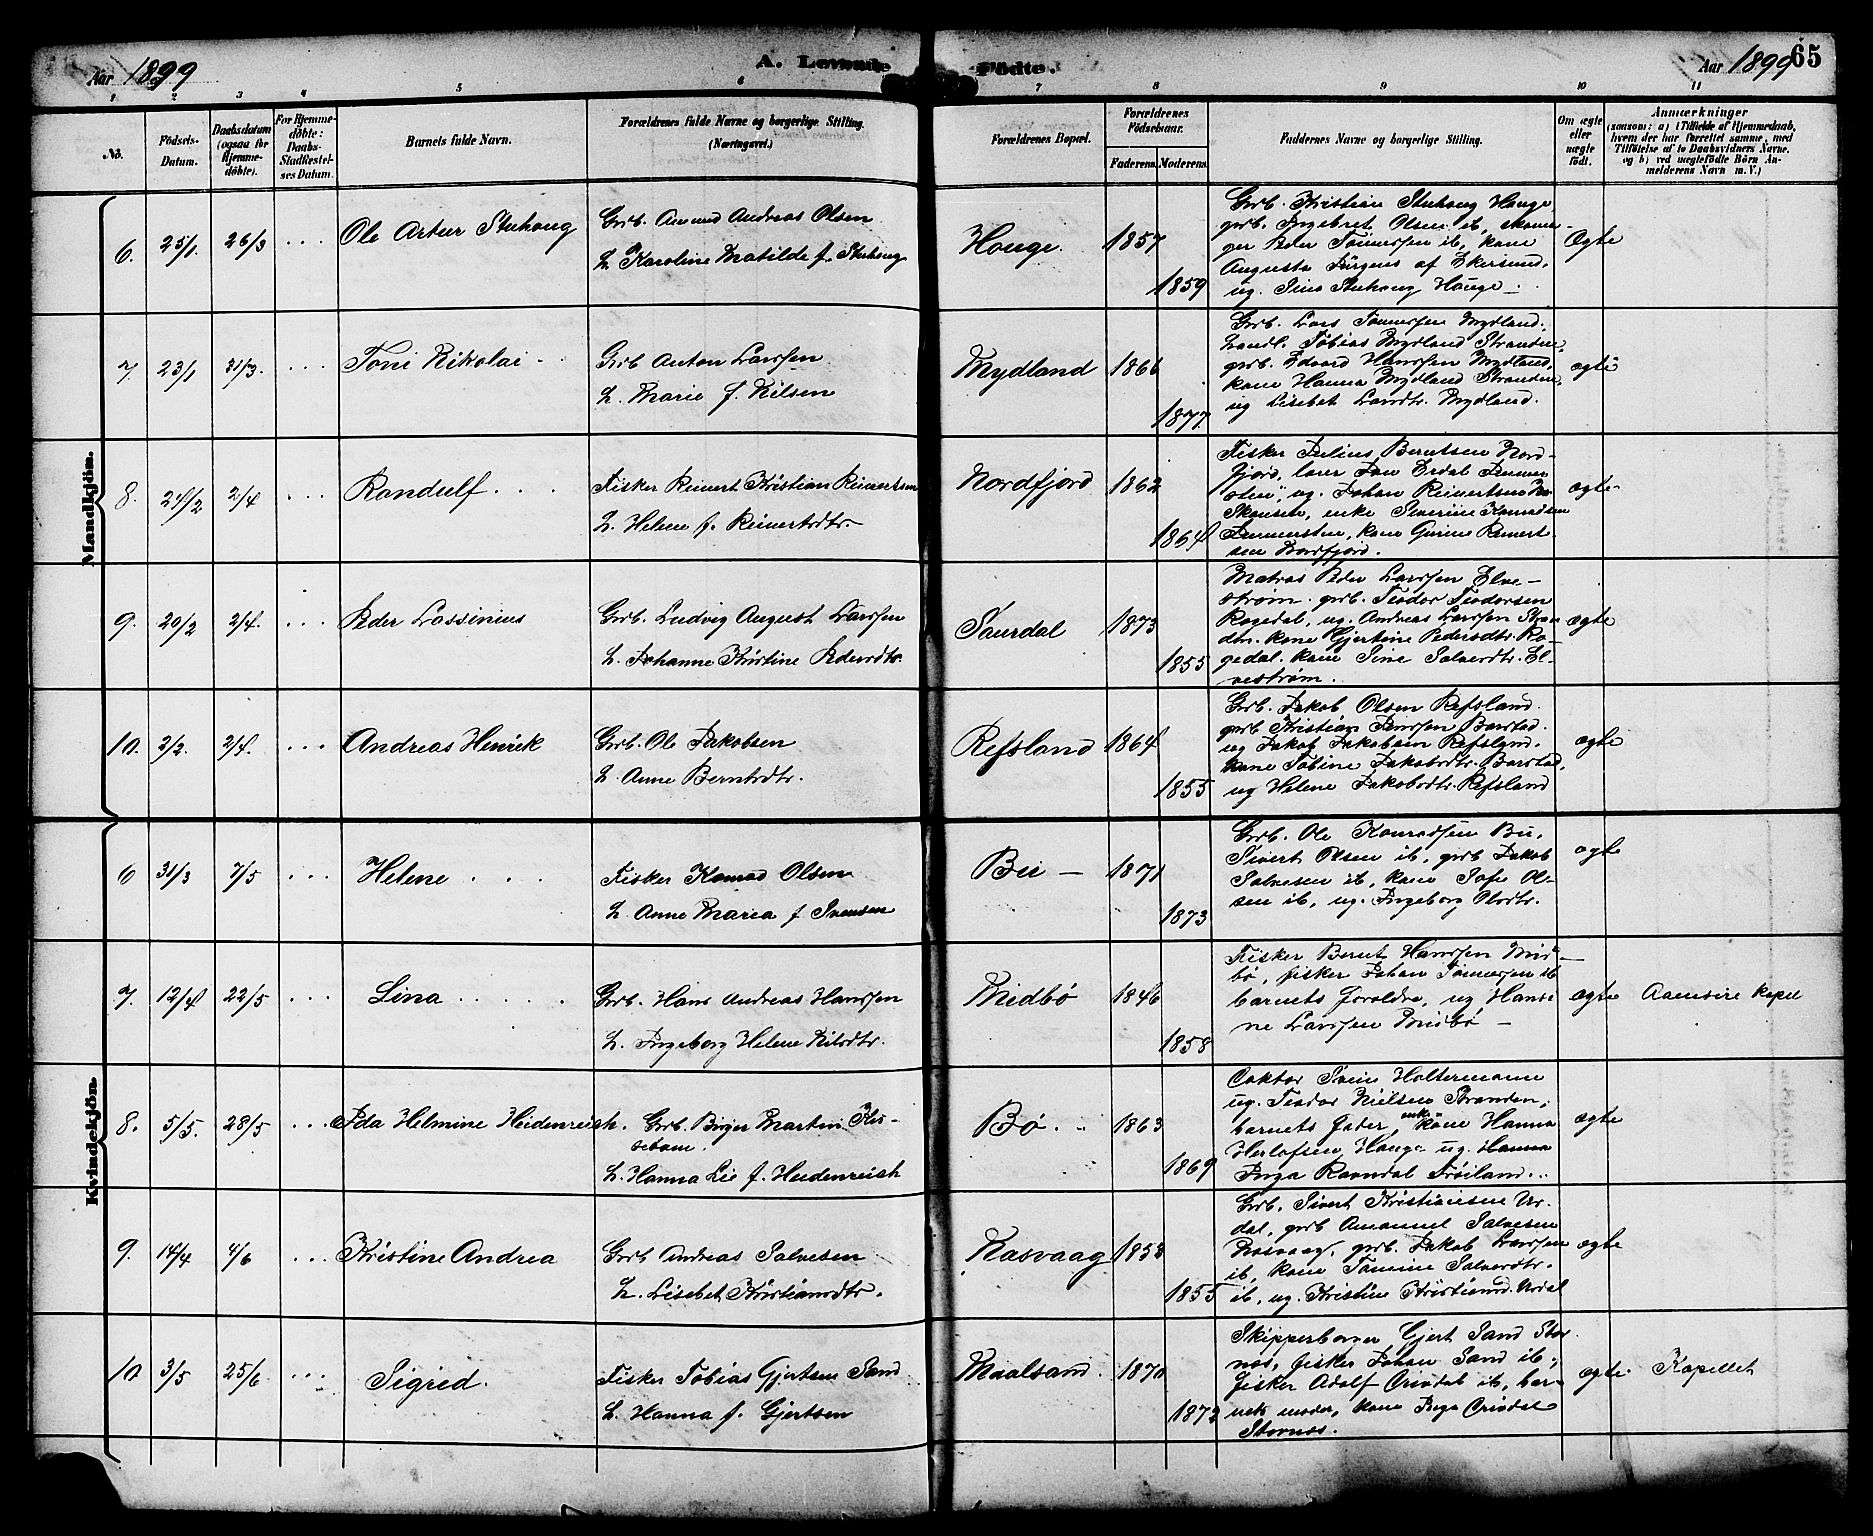 Aar 1899
A. Levende Födte.
Aar 1899 65
1 2 3 4 5 6 7 8 9 10 11
No.
Födsels-Datum.
Daabsdatum (ogsaa for Hjemme-döbte).
For Hjemme-döbte: Daabs-Stadfæstel-ses Datum.
Barnets fulde Navn.
Forældrenes fulde Navne og borgerlige Stilling. (Næringsvei.)
Forældrenes Bopæl.
Forældrenes Födselsaar.
Faderens. Moderens.
Faddernes Navne og borgerlige Stilling.
Om ægte eller uægte födt.
Anmærkninger
(saasom: a) i Tilfælde af Hjemmedaab,
hvem der har forrettet samme, med
Tilföielse af to Daabsvidners Navne,
og b) ved uægtefödte Börn An-
melderens Navn m. V.)
Mandkjön.
6. 25/1. 26/3 ... Ole Artur Stuhaug
Grb. Amund Andreas Olsen
H. Karoline Matilde f. Stuhaug
Hauge. 1857 1859
Grb. Kristian Stuhaug Hauge
grb. Ingebret Olsen ib, skoma-
ger Peder Tönnessen ib, kone
Augusta Jürgens af Ekersund,
ug. Sina Stuhaug Hauge –.
Ægte
7. 23/1 31/3. ... Toni Nikolai
Grb Anton Larssen
H. Marie f. Nilsen
Mydland 1866 1877.
Grb. Lars Tönnessen Mydland.
Handl. Tobias Mydland Stranden,
grb. Edvard Hanssen Mydland,
kone Hanna Mydland Stranden,
ug Lisebet Larsdtr. Mydland.
ægte
8. 24/2 2/4 ... Randulf
Fisker Reinert Kristian Reinertsen
H. Helene f. Reinertsdtr.
Nordfjord 1862 1864
Fisker Julius Berntsen Nord-
fjord, lærer Jan Erdal
ug. Johan Reinertsen
enke Severine
kone Gurine Reinert-
sen Nordfjord.
ægte
9. 20/2 2/4. ... Peder Lassinius
Grb. Ludvig August Larssen
H. Johanne Kristine Pedersdtr.
Saurdal 1873 1855
Matros Peder Larssen Elve-
strøm. grb. Teodor Teodorsen
Rogedal, ug. Andreas Larssen Stran-
den. kone Gjertine Pedersdtr. Ro-
gedal. kone Sine Salvesdtr. El-
vestrøm.
ægte
10. 2/2. 2/4. ... Andreas Henrik
Grb. Ole Jakobsen
H. Anne Berntsdtr.
Refsland 1864 1855
Grb. Jakob Olsen Refsland.
grb Kristian Jenssen Barstad.
ug Jakob Jakobsen Refsland.
kone Tobine Jakobsdtr. Barstad,
ug Helene Jakobsdtr. Refsland
ægte
Kvindekjön.
6 31/3 7/5 ... Helene
Fisker Konrad Olsen
H. Anne Maria f Svendsen
Bu – 1871 1873
Grb. Ole Konradsen Bu,
Sivert Olsen ib, grb Jakob
Salvesen ib, kone Sofie Ol-
sen ib, ug. Ingeborg Olsdtr.
ægte
7. 12/4 22/5 ... Lina
Grb. Hans Andreas Hanssen
H. Ingeborg Helene Nilsdtr.
Midbö 1846 1858
Fisker Bernt Hanssen Mid-
bö, fisker Johan Tönnessen ib
barnets foroldre, ug Hansi-
ne Larssen Midbö –
ægte
Aaensire kapel
8. 5/5. 28/5 ... Ida Helmine Heidenreich.
Grb. Birger Martin Kis-
sebarn.
H. Hanna Lie f. Heidenreich
Bö. 1863 1869
Doktor Svein Holtermann
ug. Teodor Nielsen Stranden,
barnets fader, enke kone Hanna
Herlofsen Hauge ug. Hanna
Inga Ravndal Fröiland..
ægte
9. 14/4 4/6 ... Kristine Andrea
Grb Andreas Salvesen
H. Lisebet Kristiansdtr.
Rasvaag 1853 1855
Grb. Sivert Kristiansen Ur-
dal, grb Amanuel Salvesen
Rasvaag, grb. Jakob Larssen
ib, kone Tomine Salvesdtr.
ib, ug. Kristine Kristiansd. Urdal
ægte
10 3/5 25/6 ... Sigrid.
Fisker Tobias Gjertsen Sand
H. Hanna f. Gjertsen
Maalsand. 1870 1872
Skipperborger Gjert Sand Stor-
nes, fisker Johan Sand ib,
fisker Adolf Orisdal ib, bar-
nets moder, kone Inga Orisdal
Stornes.
ægte
Kapellet